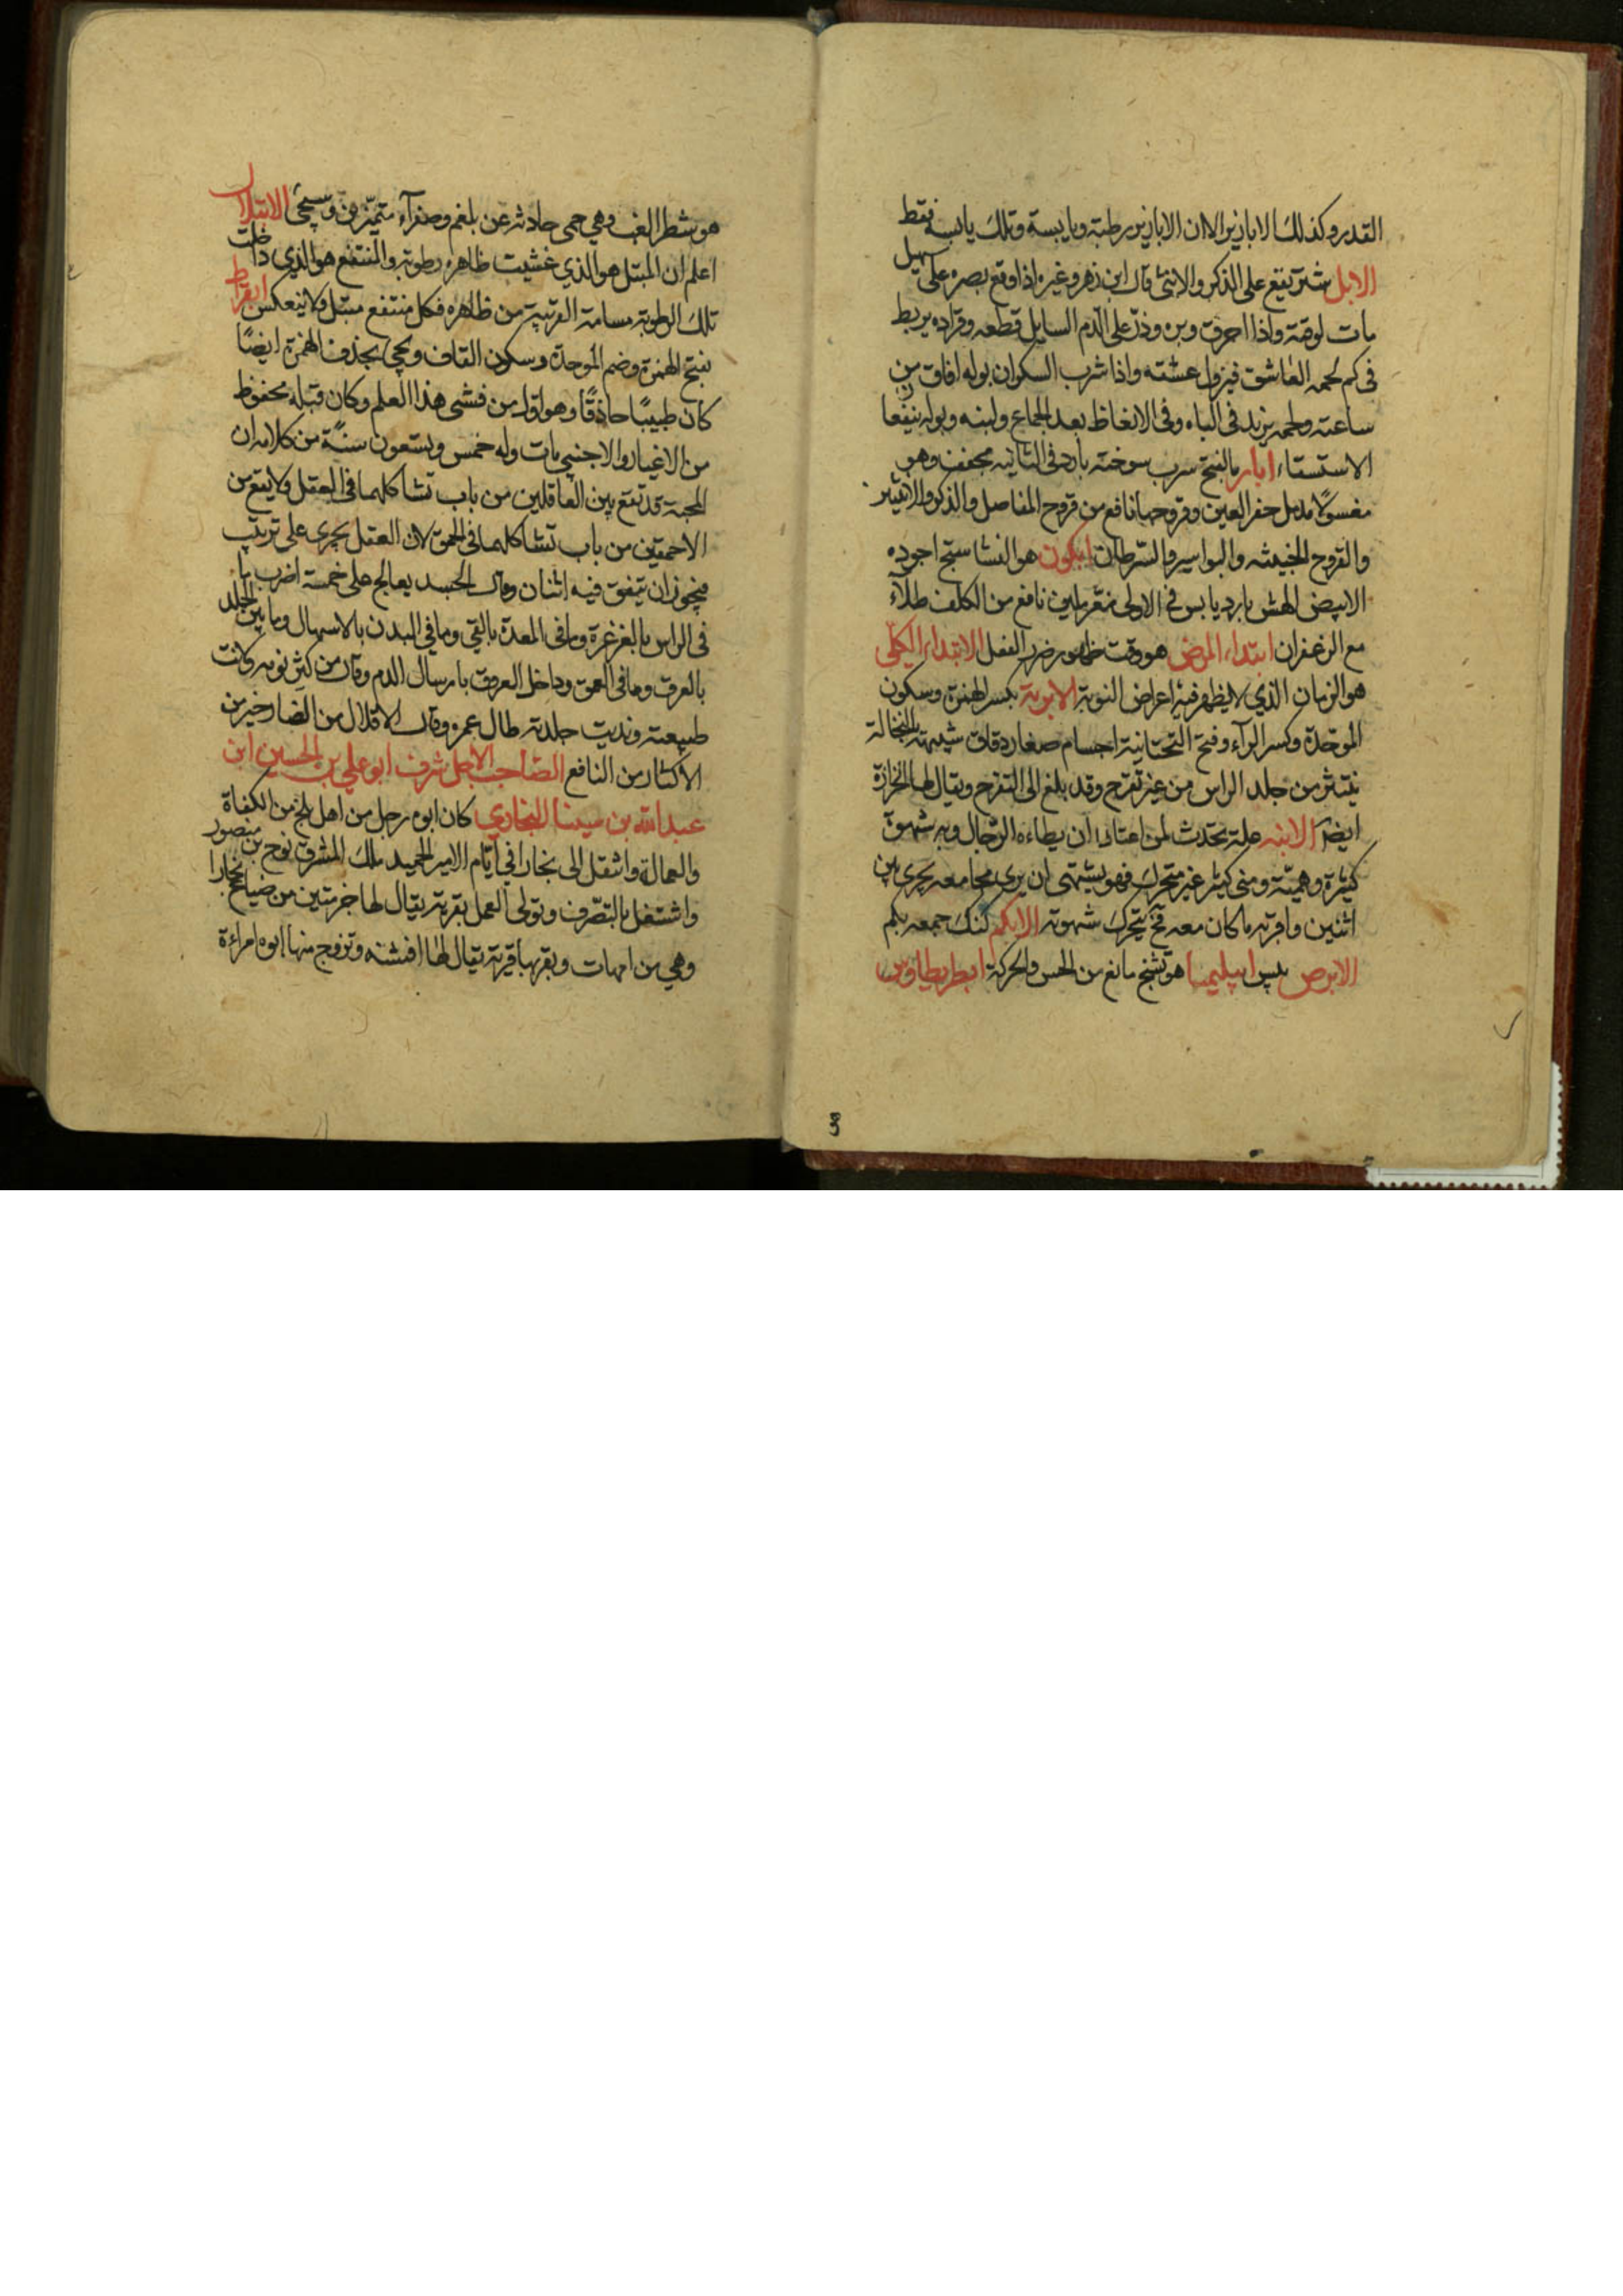 القدر وكذلك الابازير الا ان الابازير رطبة ويابسة وتلك يابسة فقط
الابل شتر يقع على الذكر والانثى قال ابن زهر وغيره اذا وقع بصره على سهيل
مات لوقته واذا احرق وبره وذر على الدم السايل قطعه وقراده يربط
فى كم لحمه العاشق فيزول عشقه واذا شرب السكران بوله افاق من
ساعته ولحمه يزيد فى الباه وفى الانعاظ بعد الجماع ولبنه وبوله ينفعا ن
الاستسقاء ابار بالفتح سرب سوخته بارد فى الثانيه مجفف وهو
مغسولا يدمل حفر العين وقروحها نافع من قروح المفاصل والذكر والانثيين
والقروح الخبيثه والبواسير والسرطان ابكون هو النشاستج اجوده
الابيض الهش بارد يابس فى الاولى مغر ملين نافع من الكلف طلاء
مع الزعفران ابتداء المرض هو وقت ظهور ضرر الفعل الابتداء الكلى
هو الزمان الذي لا يظهر فيه اعراض النوبة الابرية بكسر الهمزة وسكون
الموحدة وكسر الراء وفتح التحتانية اجسام صغار دقاق شبيهة بالنخالة
ينتثر من جلد الراس من غير تقرح وقد بلغ الى التقرح ويقال لها الحزازة
ايضا الابنه علة يحدث لمن اعتاد ان يطاءه الرجال وبه شهوة
كثيرة وهمية ومني كثير غير متحرك فهو يشتهى ان يرى مجامعه يجرى بين
اثنين واقربه ما كان معه فح يتحرك شهوته الابكم كنك جمعه بكم
الابرص پيس ابيليميا هو تشنج مانع من الحس والحركة ابطريطاوس
هو شطر الغب وهي حمى حادثه عن بلغم وصفراء متميزين وسيجئ الابتلال
اعلم ان المبتل هو الذي غشيت ظاهره رطوبه والمنتقع هو الذي داخلت
تلك الرطوبه مسامه القريبة من ظاهره فكل منتقع مبتل ولا ينعكس ابقراط
بفتح الهمزة وضم الموحدة وسكون القاف ويجئ بحذف الهمزة ايضًا
كان طبيبًا حاذقًا وهو اول من فشى هذا العلم وكان قبله محفوظ
من الاغيار والاجنبي مات وله خمس وتسعون سنة من كلامه ان
المحبة قد تقع بين العاقلين من باب تشاكلهما فى العقل ولا يقع من
الاحمقين من باب تشاكلهما فى الحمق لان العقل يجرى على ترتيب
فيجوز ان يتفق فيه اثنان وقال الجسد يعالج على خمسة اضرب ما
فى الراس بالغرغرة وما فى المعدة بالقي وما في البدن بالاسهال وما بين الجلد
بالعرق وما فى العمق وداخل العروق بارسال الدم وقال من كثر نومه ولانت
طبيعته ونديت جلدته طال عمره وقال الاقلال من الضار خير من
الاكثار من النافع الصاحب الاجل شرف ابو علي بن الحسين ابن
عبد الله بن سينا البخاري كان ابوه رجل من اهل بلخ من الكفاة
والعمال وانتقل الى بخارا في ايام الامير الحميد ملك المشرق نوح بن منصور
واشتغل بالتصرف وتولى العمل بقرية يقال لها خرمتين من ضياع بخارا
وهي من امهات وبقربها قرية يقال لها افشنه وتزوج منها ابوه امراءة
3